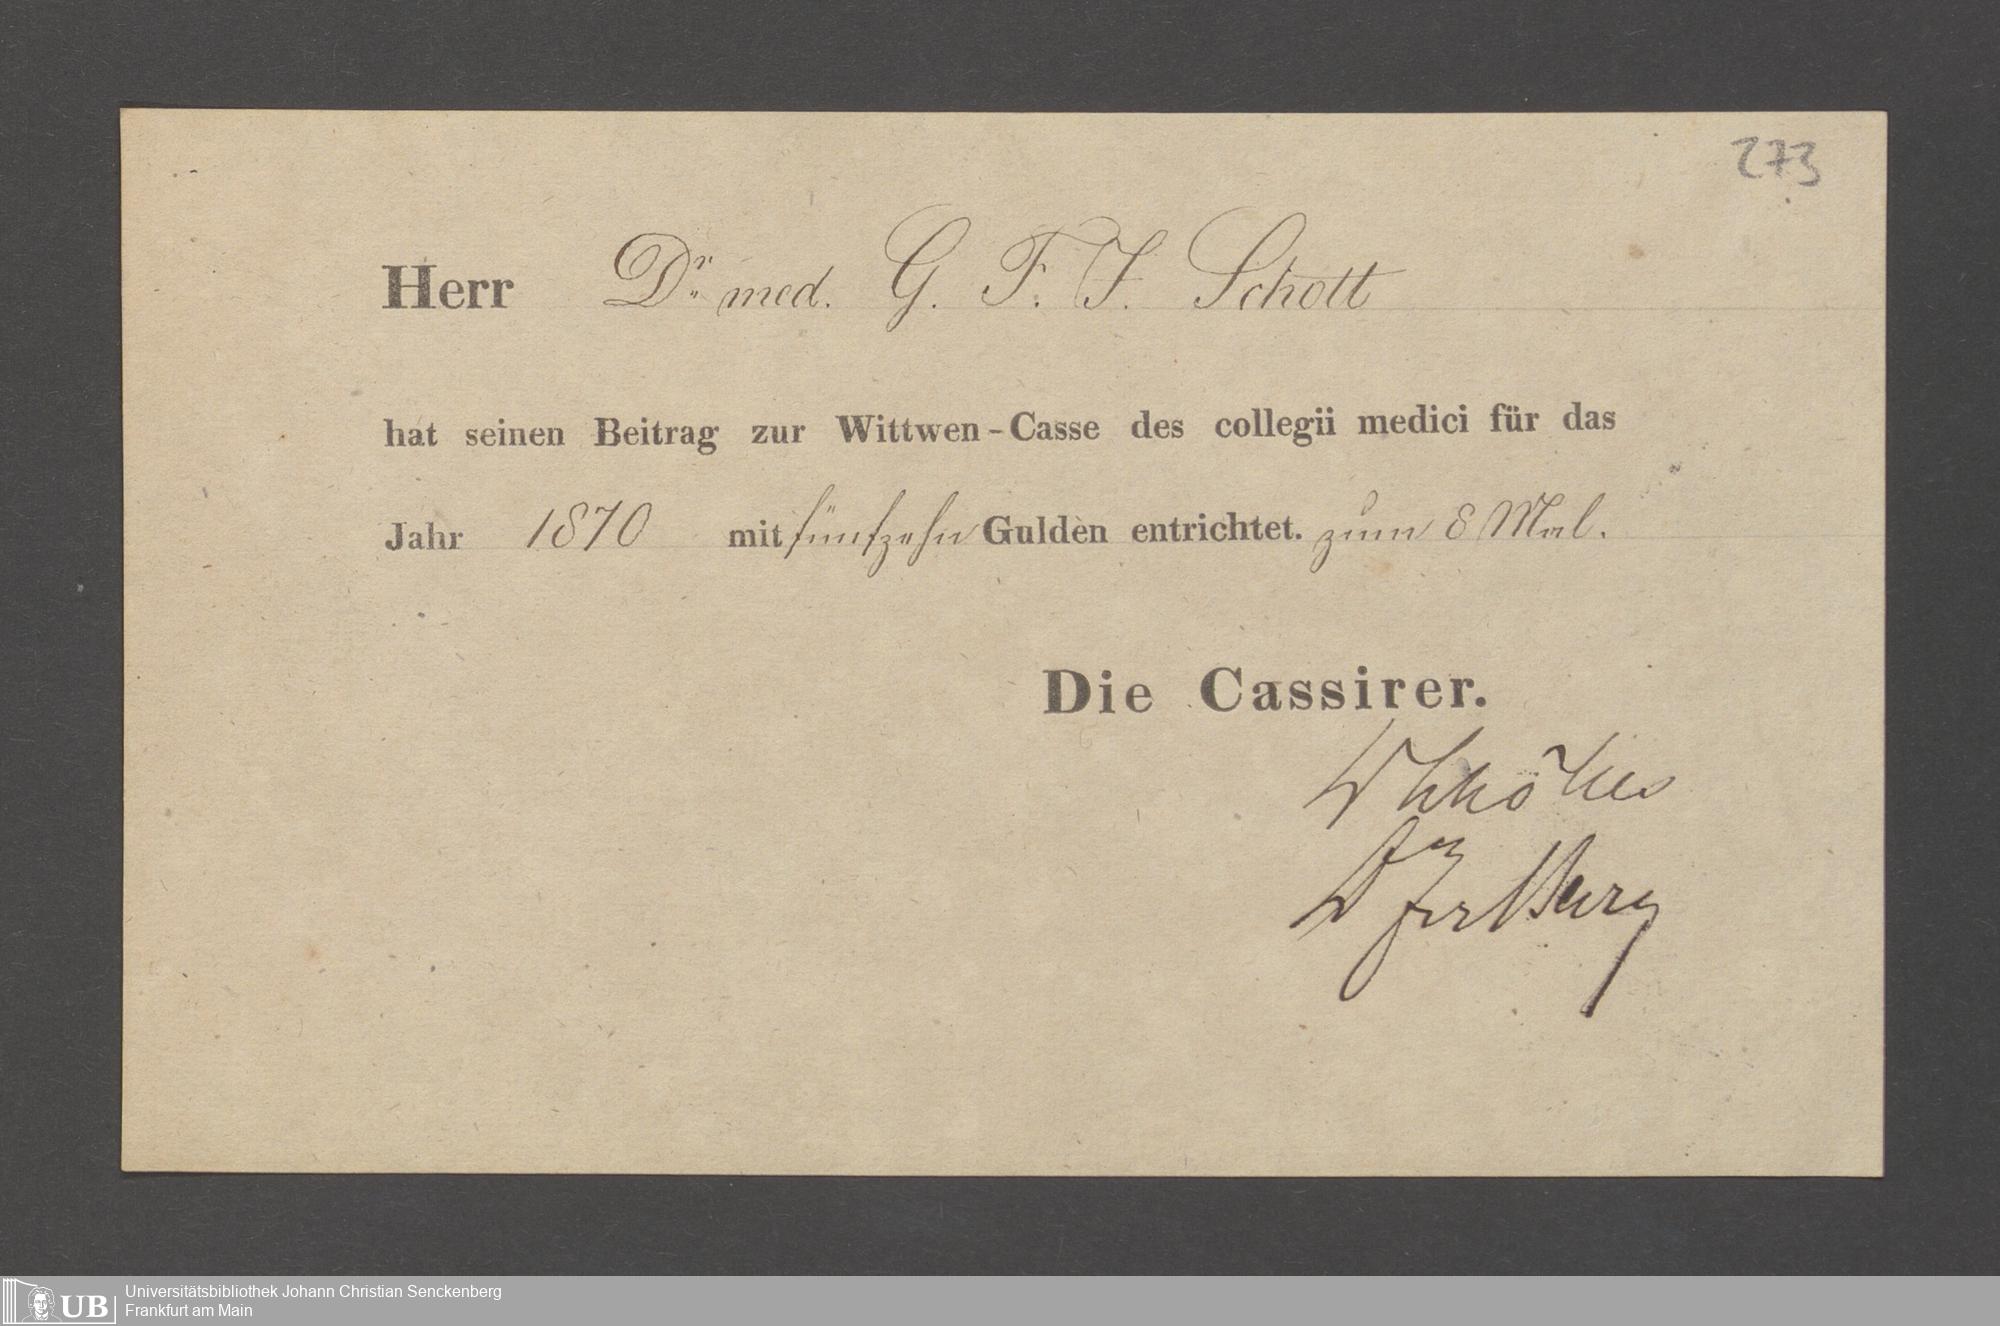 273
Herr Dr. med. G. F. J. Schott
hat seinen Beitrag zur Wittwen-Casse des collegii medici für das
Jahr 1870 mit fünfzehn Gulden entrichtet. zum 8 Mal.
Die Cassirer.
UB
Universitätsbibliothek Johann Christian Senckenberg
Frankfurt am Main